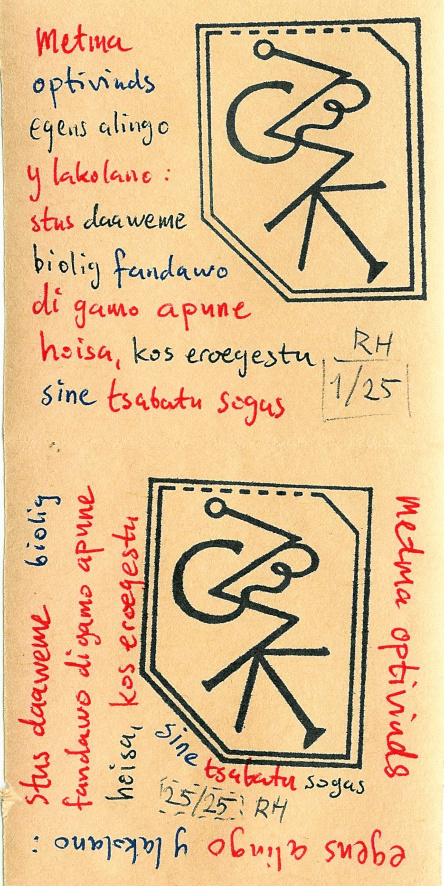 Metma
optivinds
egens alingo
y lakolano:
stus daaweme
biolig fandawo
di gamo apune
hoisa, kos eroegestu
sine tsabatu sogas
RH
1/25
medma optivinds
egens alingo y lakolano:
stus daaweme biolig
fandawo di gamo apune
hoisa, kos eroegestu
sine tsabatu sogas
25/25 RH